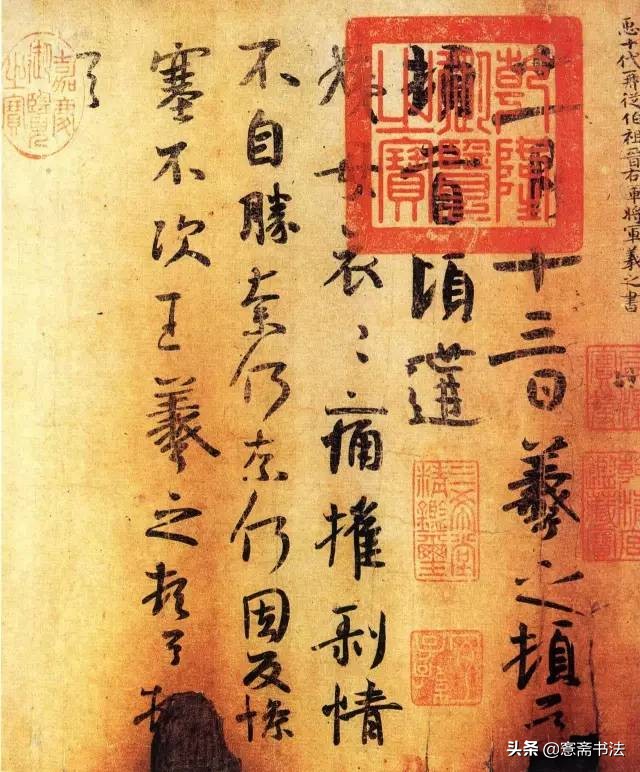 臣十代再從伯祖晉右軍將軍羲之書
乾隆御覽之寶
十一月十三日羲之頓首
頓首頃遘
三希堂精鑑璽
宜子孫
姨母哀〻痛摧剝情
不自勝奈何奈何因反慘
塞不次王羲之頓首頓
首
嘉慶御覽之寶
头条 @窓斋书法